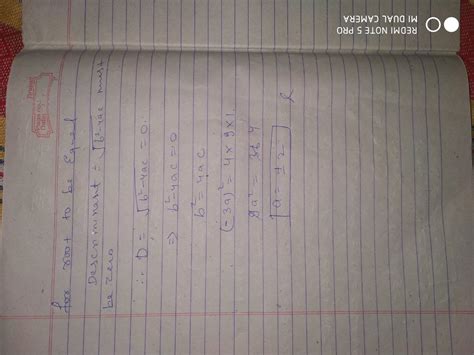 for root to be Equal
Descriminant = √b²-4ac must
be zero
∴ D = √b²-4ac = 0
⇒ b²-4ac = 0
b² = 4ac
(-3a)² = 4×9×1
9a² = 4
a = ±2
REDMI NOTE 5 PRO
MI DUAL CAMERA